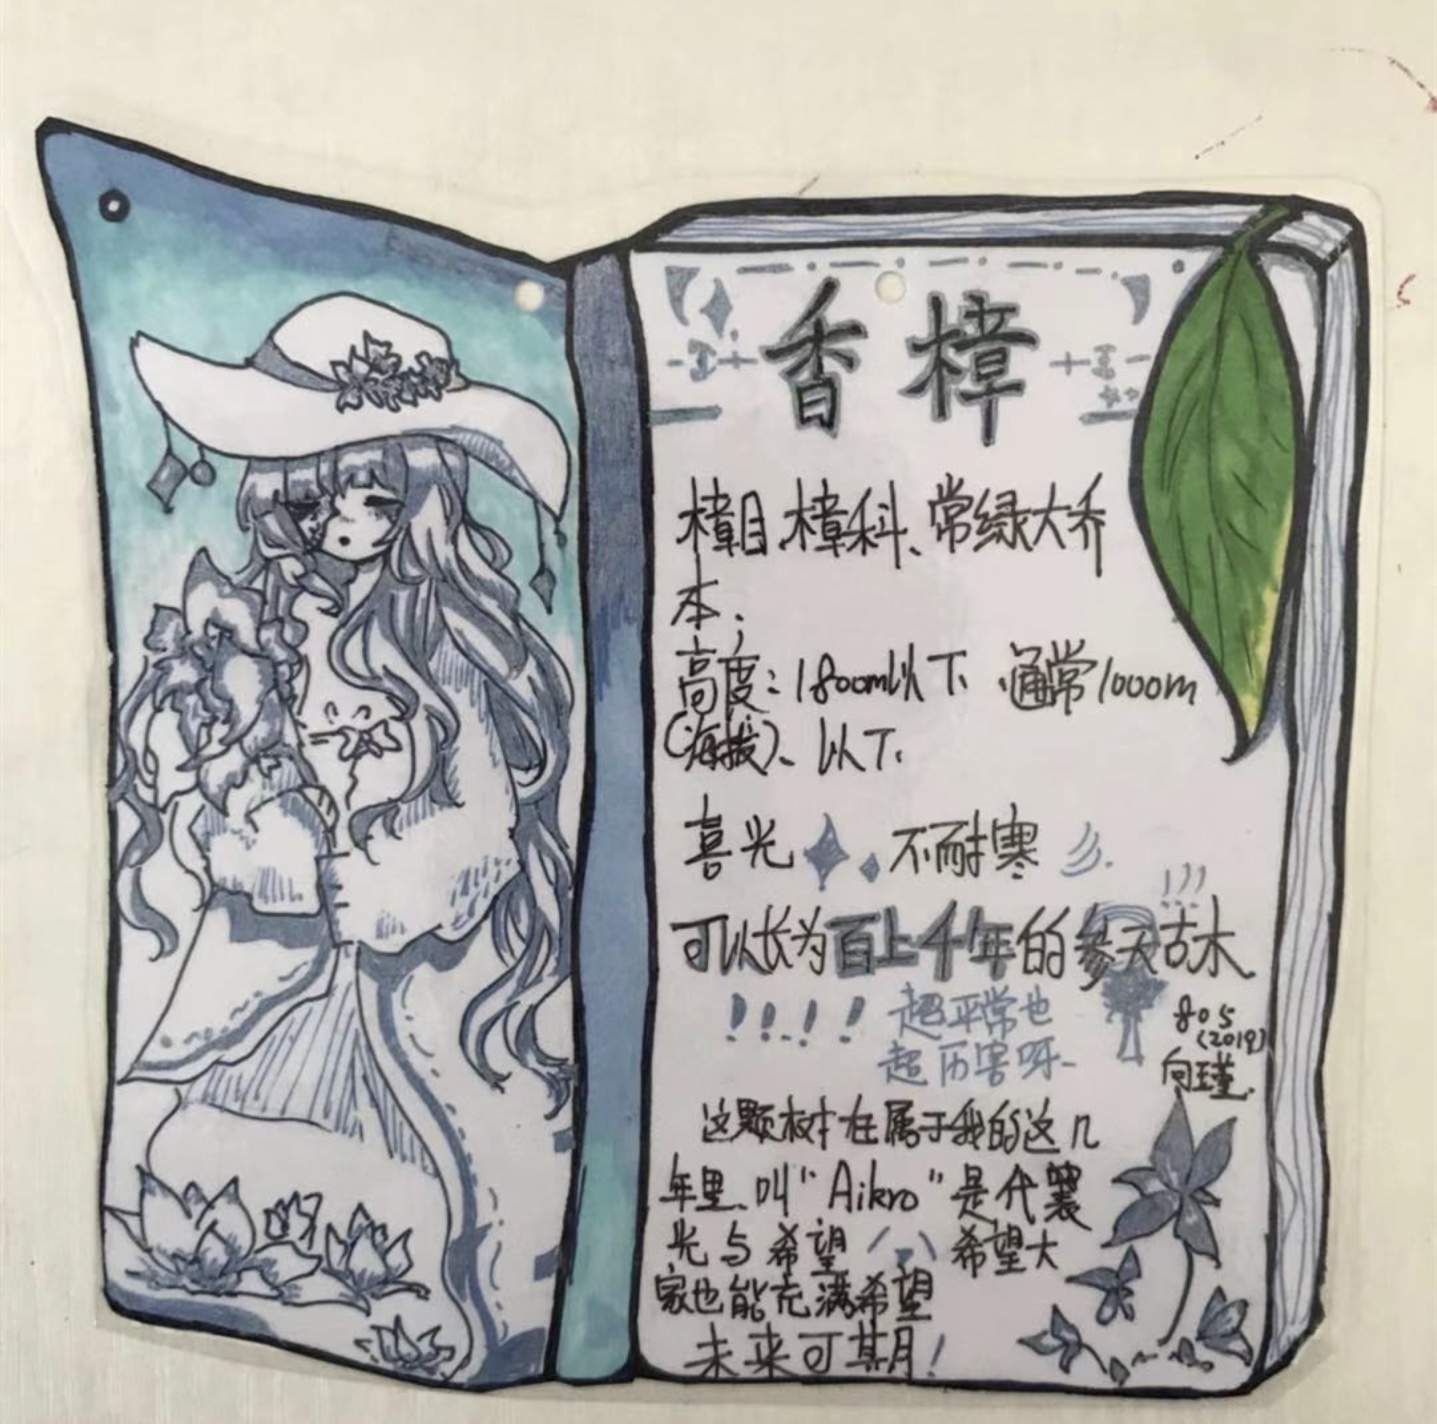 香樟
樟目、樟科、常绿大乔
本;
高度:1800m以下、通常1000m
(海拔)、以下、
喜光 不耐寒
可以长为百上千年的参天古木
!!!! 超平常也
超历害呀~
805
(2019)
向瑾.
这颗树在属于我的这几
年里、叫“Aikro”是代襄
光与希望 希望大
家也能充满希望
未来可期!